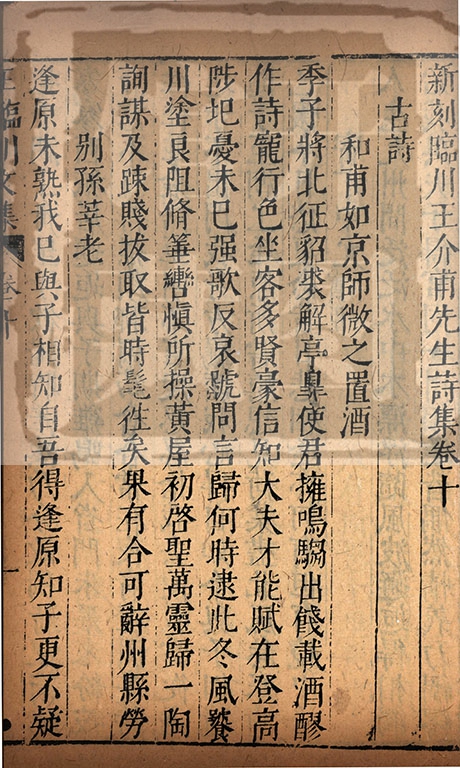 新刻臨川王介甫先生詩集卷十
古詩
和甫如京師微之置酒
季子將北征貂裘解亭臯使君擁鳴騶出餞載酒醪
作詩寵行色坐客多賢豪信知大夫才能賦在登高
陟圯憂未巳强歌反哀號問言歸何時逮此冬風饕
川塗良阻脩䇲轡慎所操黃屋初啓聖萬靈歸一陶
詢謀及踈賤拔取皆時髦徃矣果有合可辭州縣勞
別孫莘老
逢原未熟我巳與子相知自吾得逢原知子更不疑
王臨川文集 卷十 一